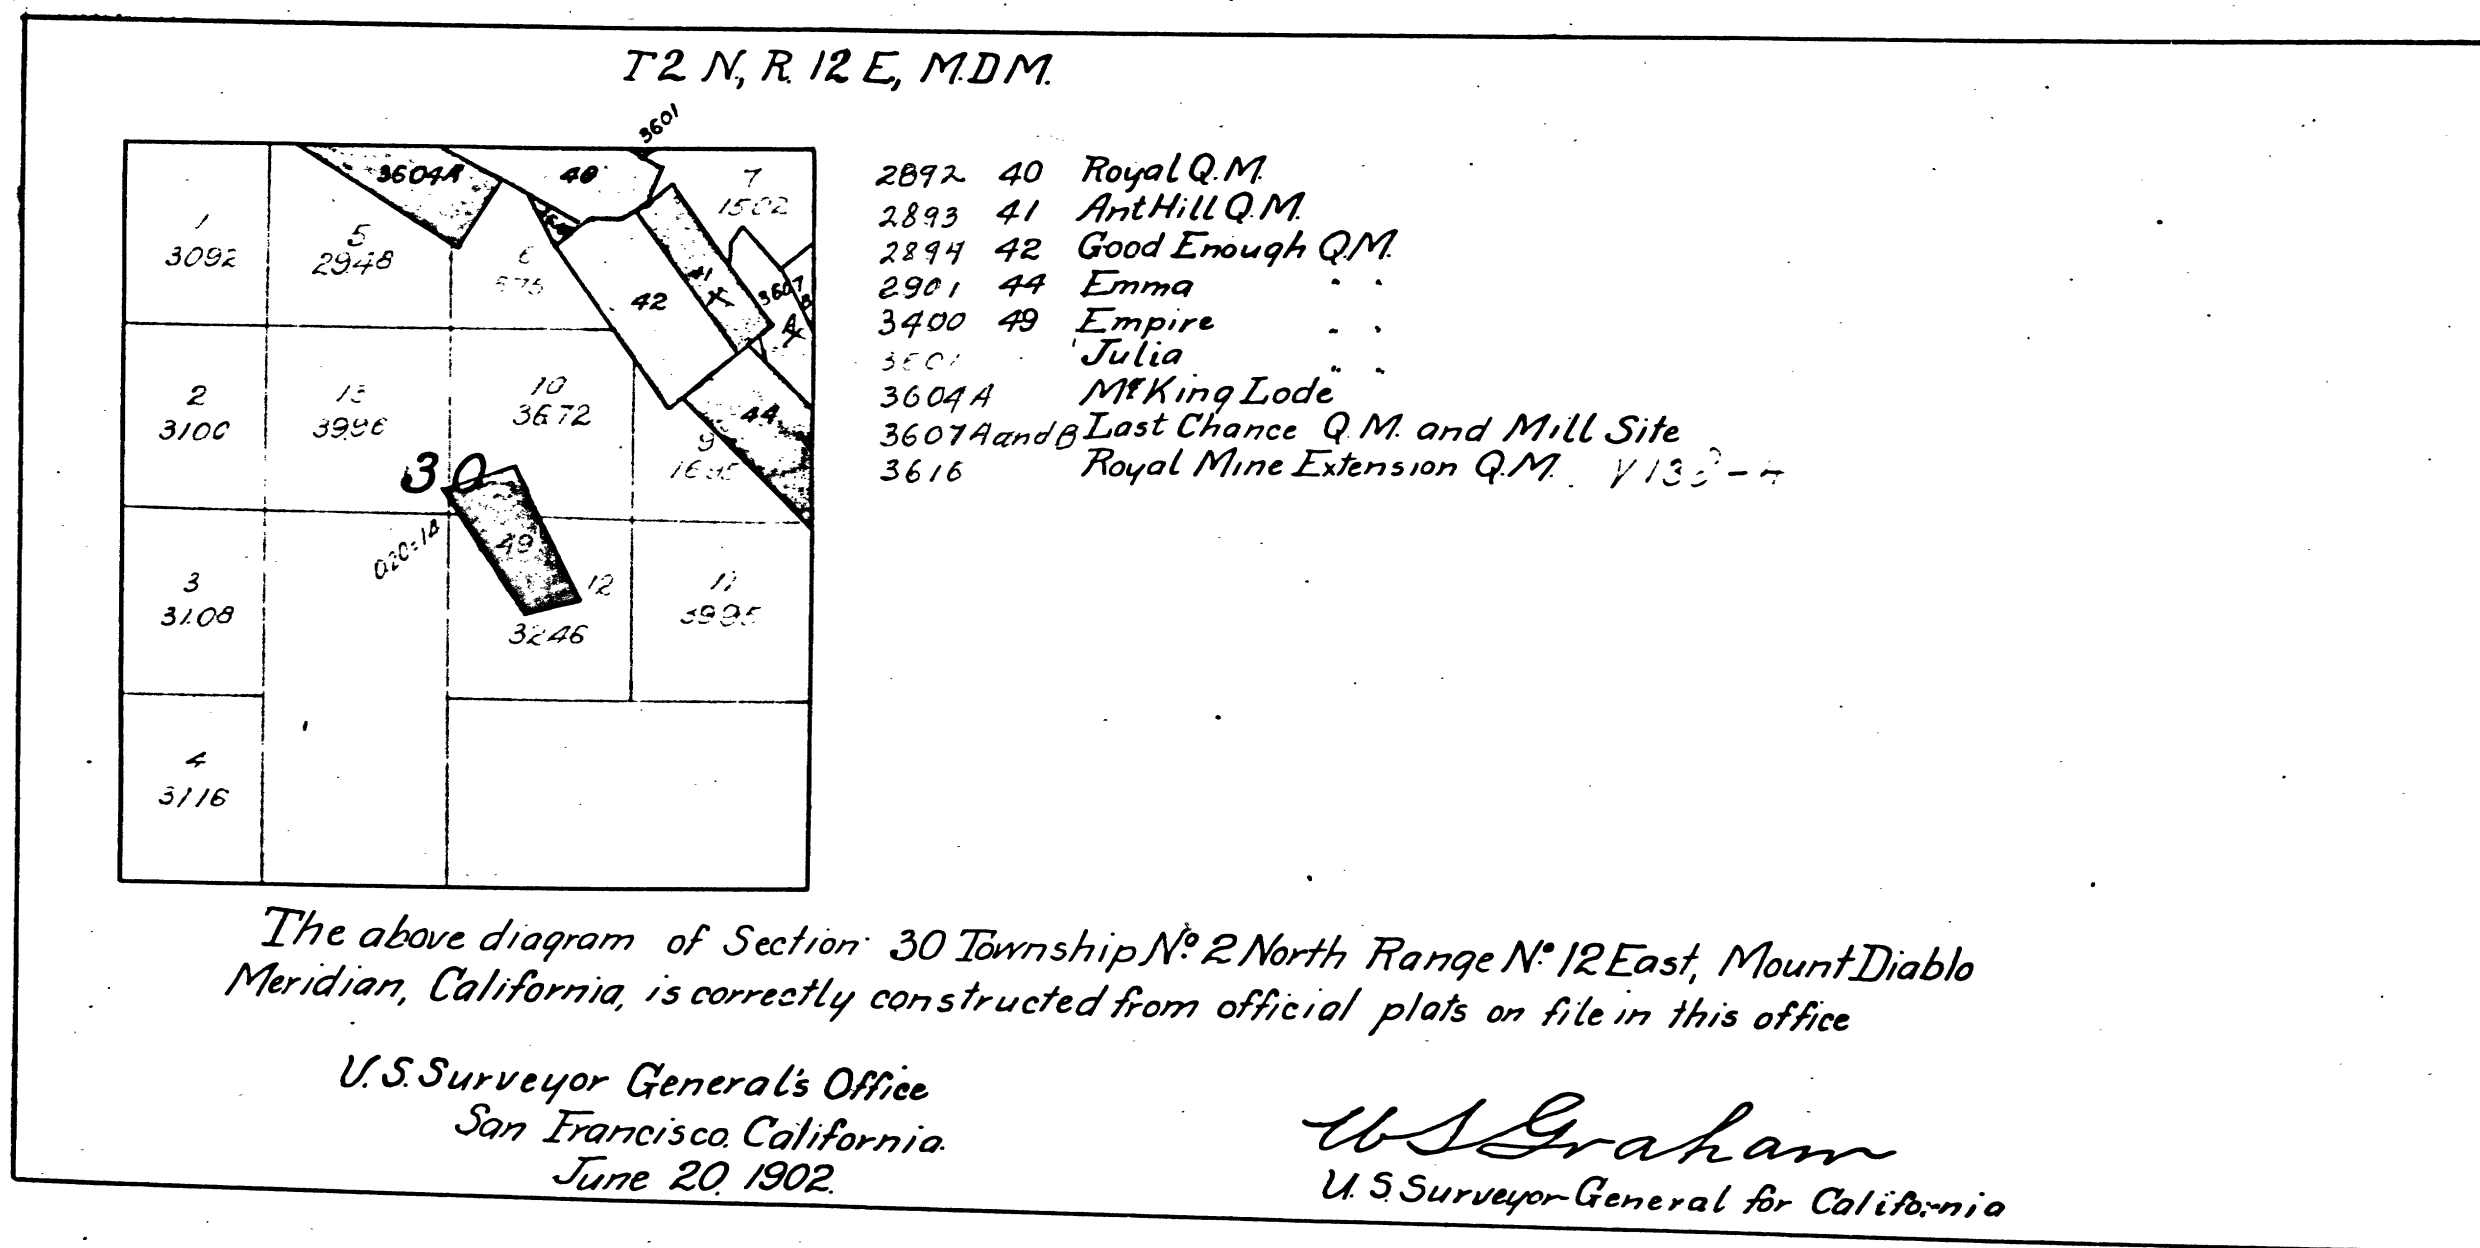 T 2 N, R. 12 E, M.D.M.
3601
3604A
40
7
1502
1
3092
5
2948
6
42
41
X
3607
B
A
X
2
3100
13
3996
10
3672
44
9
30
49
12
3246
3
3108
11
3995
4
3116
2892 40 Royal Q.M.
2893 41 Ant Hill Q.M.
2894 42 Good Enough Q.M.
2901 44 Emma " "
3400 49 Empire " "
3601 Julia " "
3604A McKing Lode
3607A and B Last Chance Q.M. and Mill Site
3616 Royal Mine Extension Q.M.
The above diagram of Section 30 Township No. 2 North Range No. 12 East, Mount Diablo
Meridian, California, is correctly constructed from official plats on file in this office
U.S. Surveyor General's Office
San Francisco. California.
June 20, 1902.
W S Graham
U.S. Surveyor-General for California